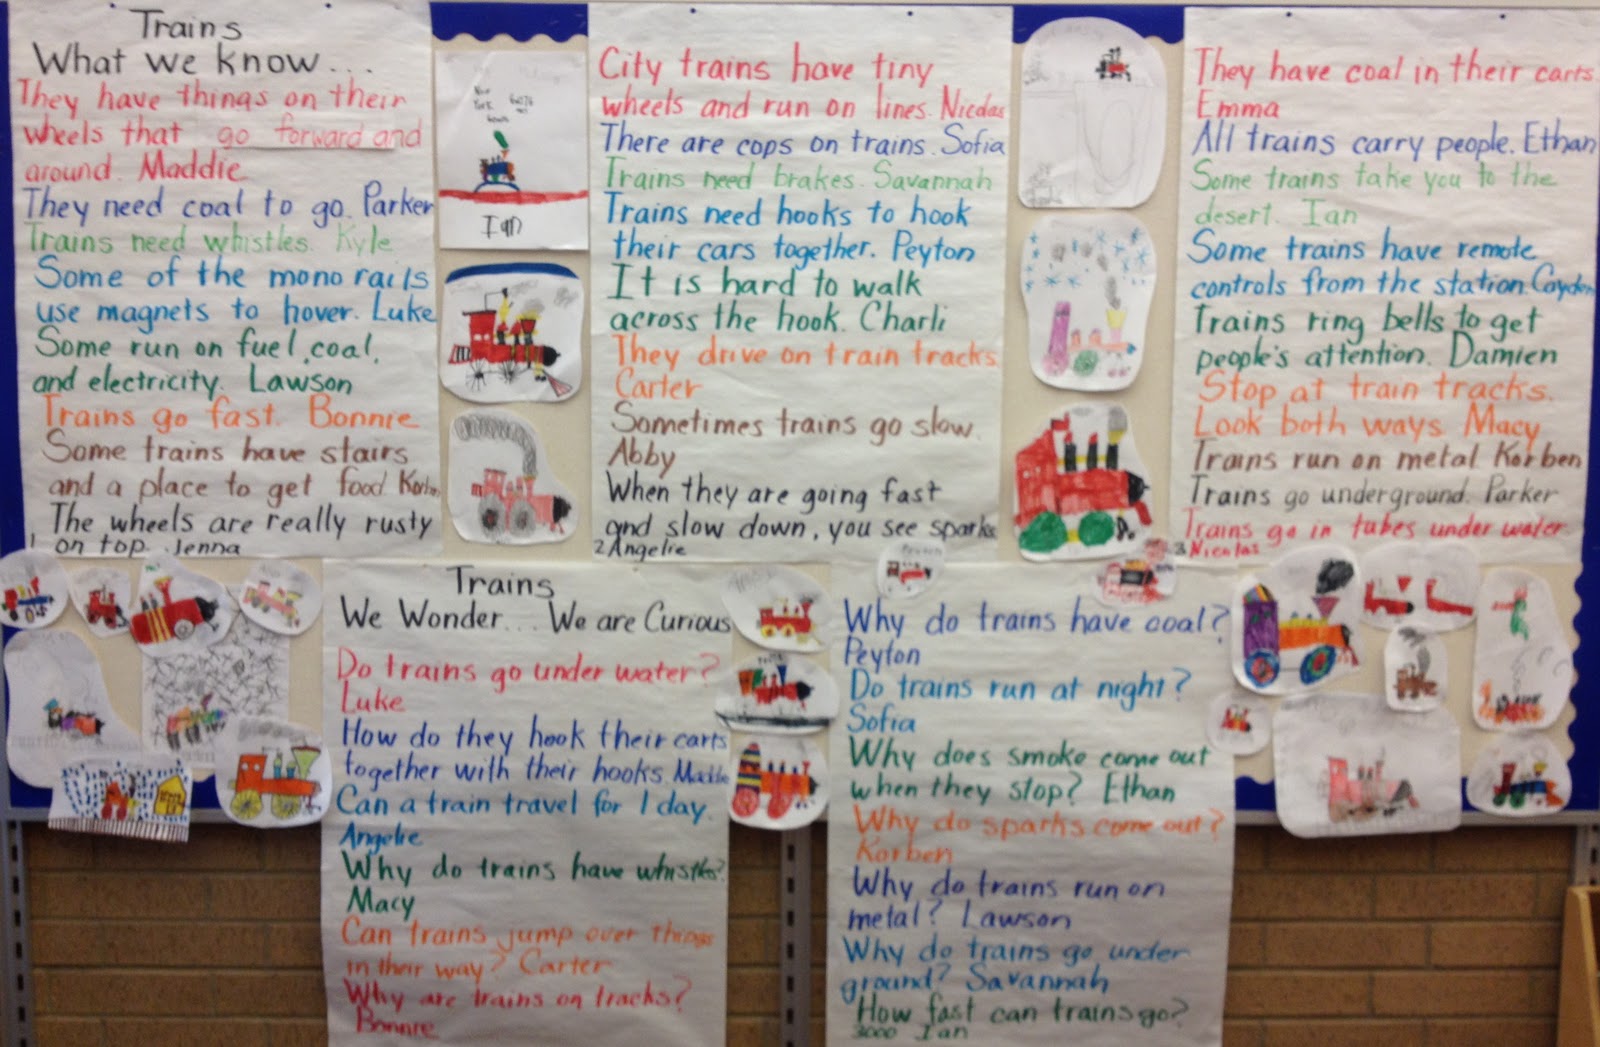 Trains
What we know...
They have things on their
wheels that go forward and
around. Maddie
They need coal to go. Parker
Trains need whistles. Kyle
Some of the mono rails
use magnets to hover. Luke
Some run on fuel, coal,
and electricity. Lawson
Trains go fast. Bonnie
Some trains have stairs
and a place to get food. Korben
The wheels are really rusty
1 on top. Jenna
New
York
Ian
City trains have tiny
wheels and run on lines. Nicolas
There are cops on trains. Sofia
Trains need brakes. Savannah
Trains need hooks to hook
their cars together. Peyton
It is hard to walk
across the hook. Charli
They drive on train tracks.
Carter
Sometimes trains go slow.
Abby
When they are going fast
and slow down, you see sparks
2 Angelie
They have coal in their carts
Emma
All trains carry people. Ethan
Some trains take you to the
desert. Ian
Some trains have remote
controls from the station. Cayden
Trains ring bells to get
people's attention. Damien
Stop at train tracks.
Look both ways Macy
Trains run on metal Korben
Trains go underground. Parker
Trains go in tubes under water
3 Nicolas
Trains
We Wonder... We are Curious
Do trains go under water?
Luke
How do they hook their carts
together with their hooks. Maddie
Can a train travel for 1 day.
Angelie
Why do trains have whistles?
Macy
Can trains jump over things
in their way? Carter
Why are trains on tracks?
Bonnie
Why do trains have coal?
Peyton
Do trains run at night?
Sofia
Why does smoke come out
when they stop? Ethan
Why do sparks come out?
Korben
Why do trains run on
metal? Lawson
Why do trains go under
ground? Savannah
How fast can trains go?
3000 Ian